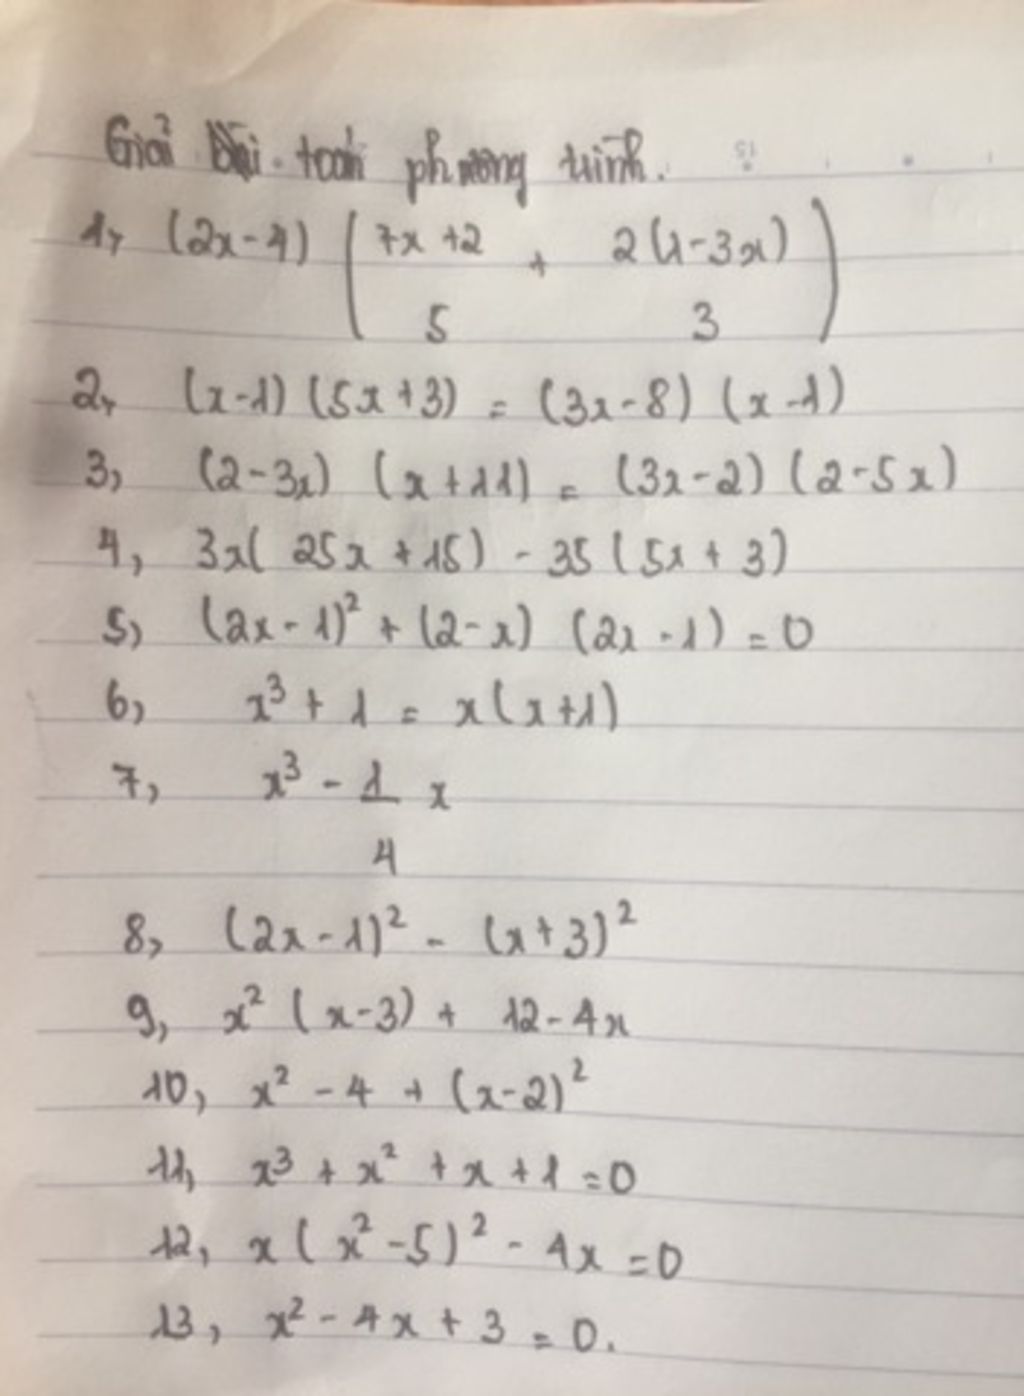 Giải bài toán phương trình.
1, (2x-4) ( 7x+2 + 2(1-3x) )
5 3
2, (x-1) (5x+3) = (3x-8) (x-1)
3, (2-3x) (x+11) = (3x-2) (2-5x)
4, 3x( 25x + 15) - 35 (5x + 3)
5, (2x-1)² + (2-x) (2x-1) = 0
6, x³ + 1 = x(x+1)
7, x³ - 1 x
4
8, (2x-1)² - (x+3)²
9, x² (x-3) + 12-4x
10, x² - 4 + (x-2)²
11, x³ + x² + x + 1 = 0
12, x ( x² -5)² - 4x = 0
13, x² - 4x + 3 = 0.